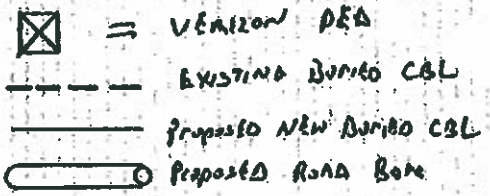 = VERIZON PED
EXISTING BURIED CBL
PROPOSED NEW BURIED CBL
PROPOSED ROAD BORE